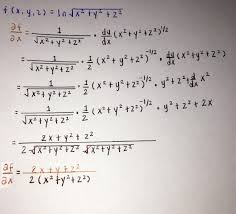 f(x,y,z) = ln √x²+y²+z²
∂f/∂x = 1/√x²+y²+z² · dy/dx (x²+y²+z²)^1/2
= 1/√x²+y²+z² · 1/2 (x²+y²+z²)^-1/2 · d/dx (x²+y²+z²)
= 1/√x²+y²+z² · 1/2 (x²+y²+z²)^-1/2 · y²+z² d/dx x²
= 1/√x²+y²+z² · 1/2 (x²+y²+z²)^-1/2 · y²+z²+2x
= 2x+y²+z² / 2√x²+y²+z² √x²+y²+z²
∂f/∂x = 2x+y²+z² / 2(x²+y²+z²)